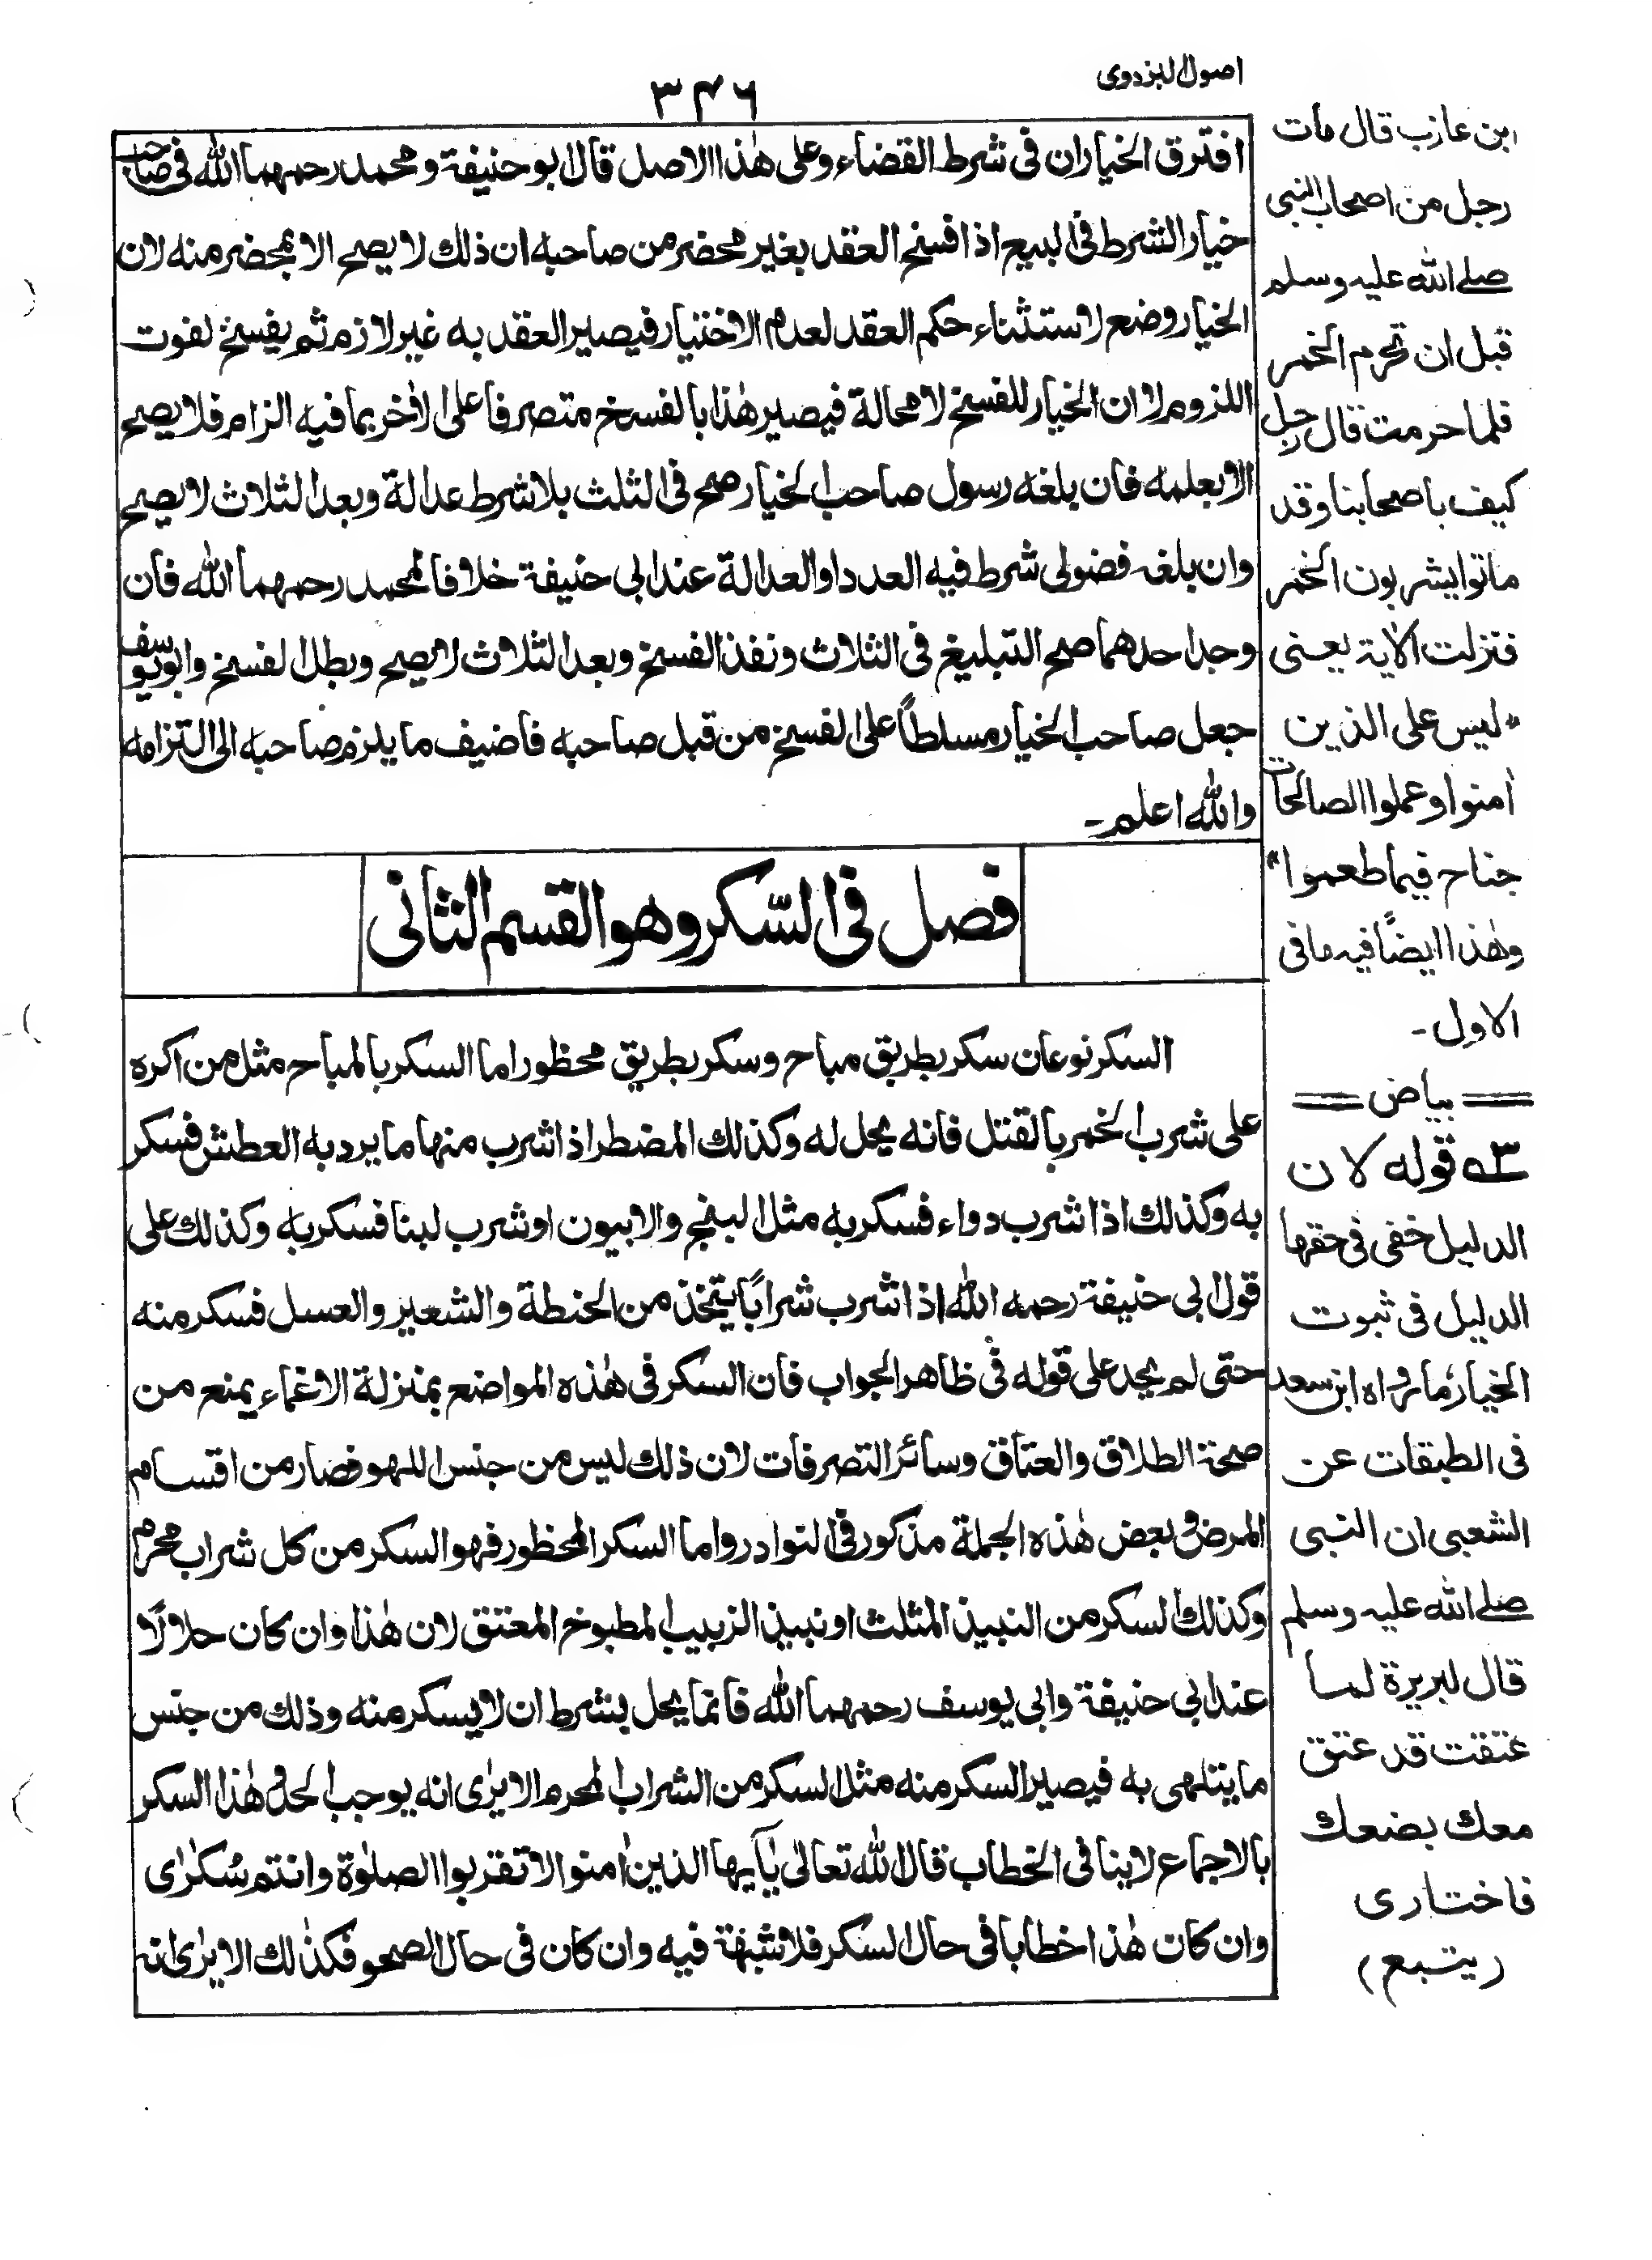 اصول البزدوی
۳۴۶
افترق الخياران فى شرط القضاء وعلى هٰذا الاصل قال ابو حنيفة و محمد رحمهما الله فى صاحب
خيار الشرط فى البيع اذا فسخ العقد بغير محضر من صاحبه ان ذلك لا يصح الا بمحضر منه لان
الخيار وضع لاستثناء حكم العقد لعدم الاختيار فيصير العقد به غير لازم ثم يفسخ لفوت
اللزوم لا ان الخيار للفسخ لا محالة فيصير هٰذا بالفسخ متصرفا على الاٰخر بما فيه الزام فلا يصح
الا بعلمه فان بلغه رسول صاحب الخيار صح فى الثلث بلا شرط عدالة وبعد الثلاث لا يصح
وان بلغه فضولى شرط فيه العدد او العدالة عند ابى حنيفة خلافا لمحمد رحمهما الله فان
وجد احدهما صح التبليغ فى الثلاث ونفذ الفسخ وبعد الثلاث لا يصح وبطل الفسخ وابو يوسف
جعل صاحب الخيار مسلطاً على الفسخ من قبل صاحبه فاضيف ما يلزم صاحبه الى التزامه
والله اعلم۔
فصل فى السّكر وهو القسم الثانى
السكر نوعان سكر بطريق مباح وسكر بطريق محظور اما السكر بالمباح مثل من اكره
على شرب الخمر بالقتل فانه يحل له وكذلك المضطر اذا شرب منها ما يرد به العطش فسكر
به وكذلك اذا شرب دواء فسكر به مثل البنج والافيون او شرب لبنا فسكر به وكذلك على
قول ابى حنيفة رحمه الله اذا شرب شراباً يتخذ من الحنطة والشعير والعسل فسكر منه
حتى لم يحد على قوله فى ظاهر الجواب فان السكر فى هٰذه المواضع بمنزلة الاغماء يمنع من
صحة الطلاق والعتاق وسائر التصرفات لان ذلك ليس من جنس اللهو فصار من اقسام
المرض و بعض هٰذه الجملة مذكور فى النوادر واما السكر المحظور فهو السكر من كل شراب محرم
وكذلك السكر من النبيذ المثلث او نبيذ الزبيب المطبوخ المعتق لان هٰذا وان كان حلالًا
عند ابى حنيفة وابى يوسف رحمهما الله فانما يحل بشرط ان لا يسكر منه وذلك من جنس
ما يتلهى به فيصير السكر منه مثل السكر من الشراب المحرم الا يرٰى انه يوجب الحد و هٰذا السكر
بالاجماع لا ينافى الخطاب قال الله تعالىٰ يٰٓاَيها الذين اٰمنوا لا تقربوا الصلوٰة وانتم سُكٰرٰى
وان كان هٰذا خطابا فى حال السكر فلا شبهة فيه وان كان فى حال الصحو فكذٰلك الا يرٰى انه
ابن عازب قال مات
رجل من اصحاب النبى
صلے الله عليه وسلم
قبل ان تحرم الخمر
فلما حرمت قال رجل
كيف باصحابنا وقد
ماتوا يشربون الخمر
فنزلت الاٰية يعنى
"ليس على الذين
اٰمنوا وعملوا الصالحات
جناح فيما طعموا"
وهٰذا ايضًا فيه ما فى
الاول۔
== بياض ==
۳ـه قوله لان
الدليل خفى فى حقها
الدليل فى ثبوت
الخيار ما رواه ابن سعد
فى الطبقات عن
الشعبى ان النبى
صلے الله عليه وسلم
قال لبريرة لما
عتقت قد عتق
معك بضعك
فاختارى
(يتبع)